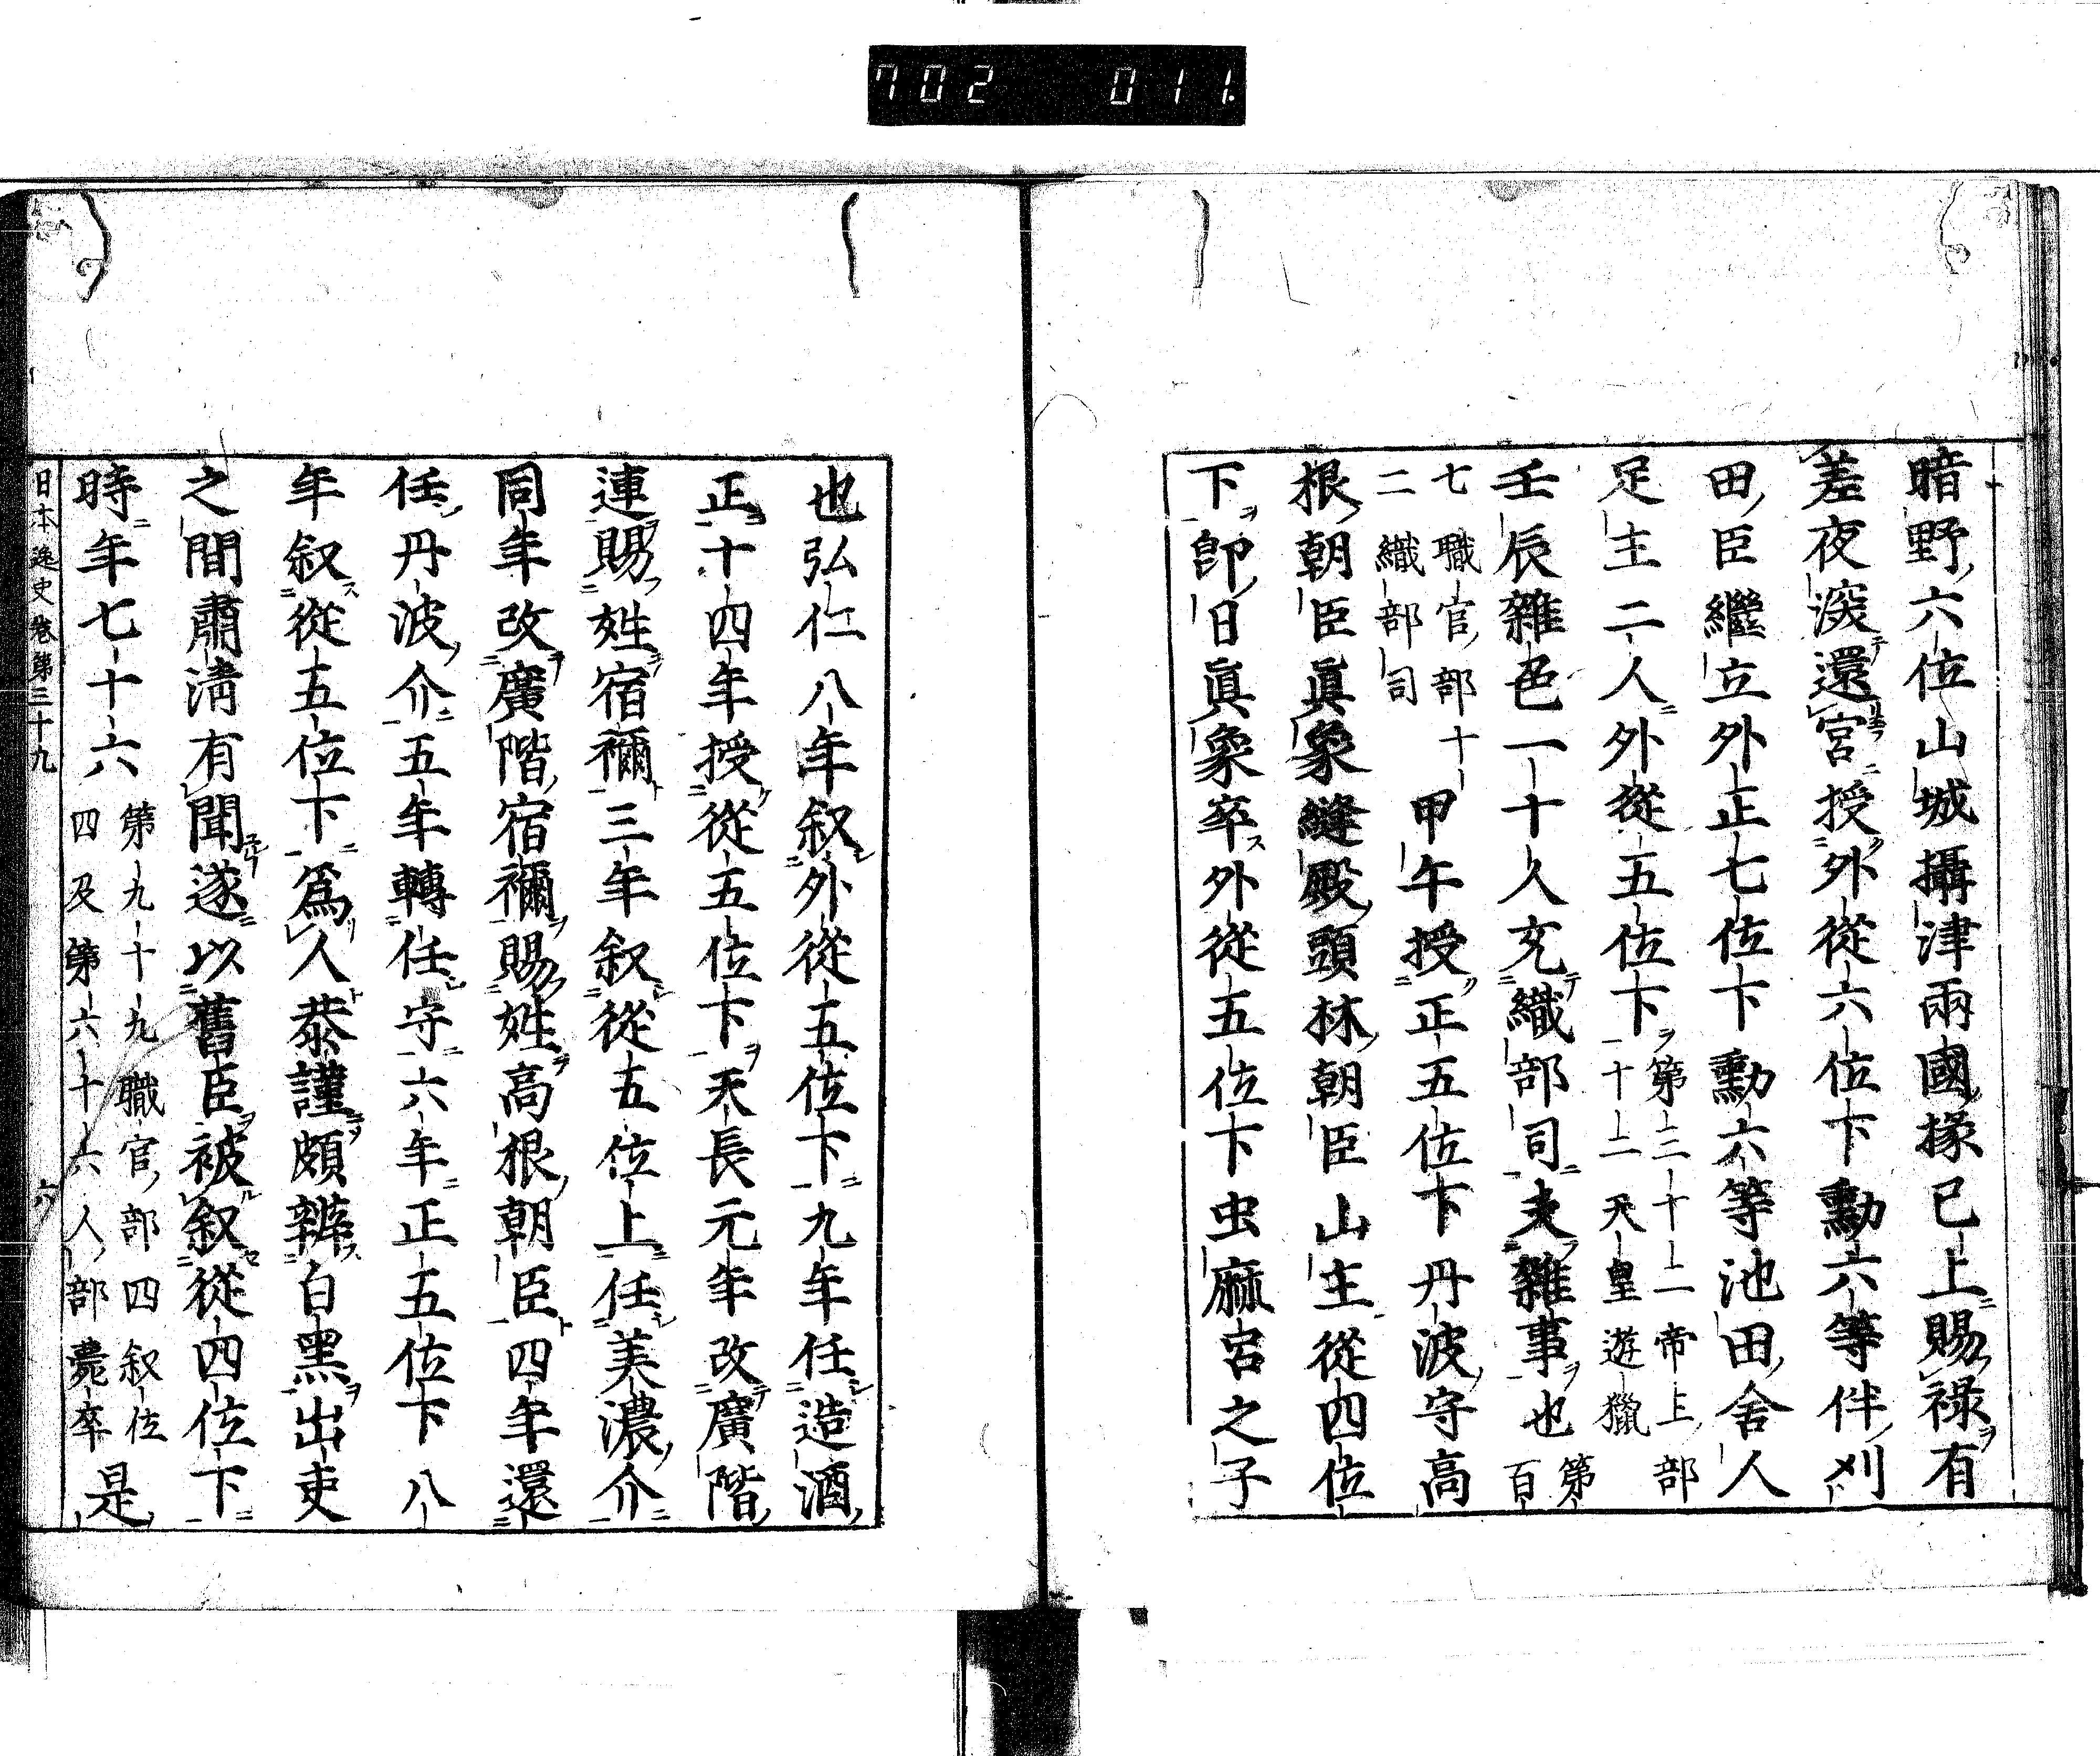 702 011
暗野六位山城攝津兩國掾已上賜祿有
差夜深還宮授外從六位下勳六等伴刈
田臣繼立外正七位下勳六等池田舍人
足主二人外從五位下
第三十二帝王部
十二天皇遊獵
壬辰雜色一十人充織部司夫雜事也
第
百
七職官部十
二織部司
甲午授正五位下丹波守高
根朝臣眞象縫殿頭林朝臣山主從四位
下即日眞象卒外從五位下虫麻呂之子
也弘仁八年叙外從五位下九年任造酒
正十四年授從五位下天長元年改廣階
連賜姓宿禰三年叙從五位上任美濃介
同年改廣階宿禰賜姓高根朝臣四年還
任丹波介五年轉任守六年正五位下八
年叙從五位下爲人恭謹頗辨白黑出吏
之間肅淸有聞遂以舊臣被叙從四位下
時年七十六
第九十九職官部四叙位
四及第六十六人部薨卒
是
日本逸史卷第三十九
六